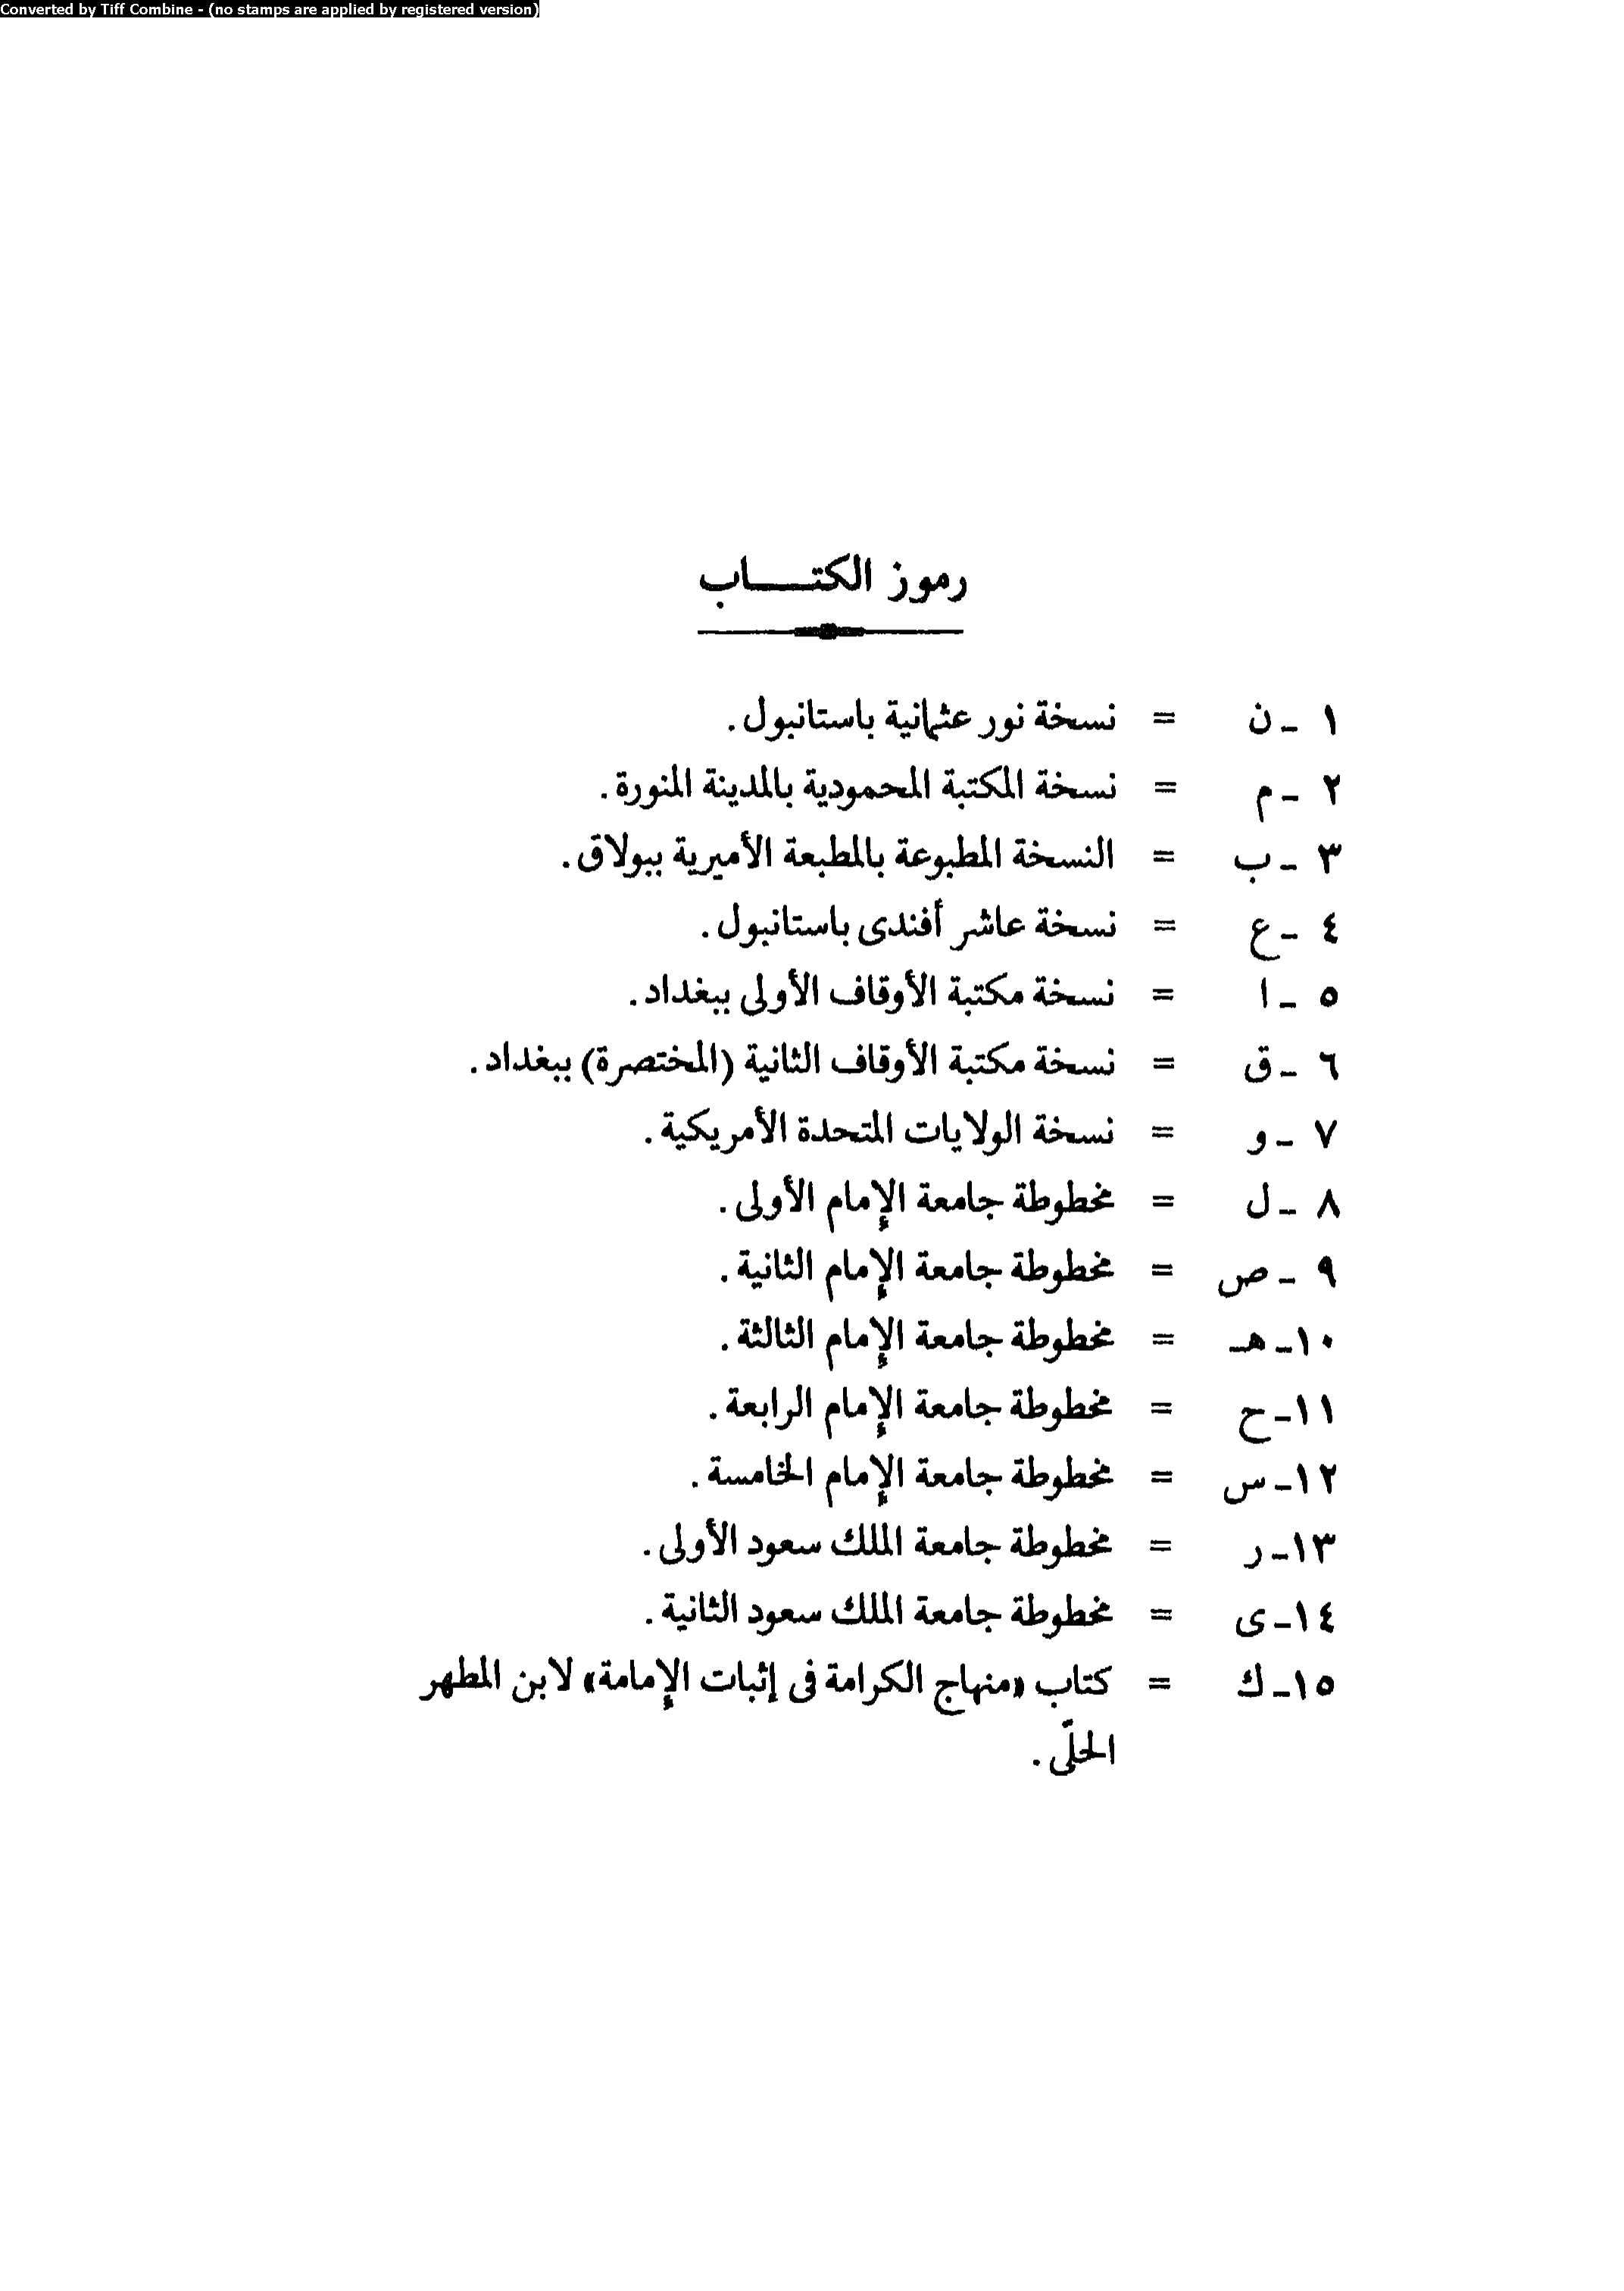 Converted by Tiff Combine - (no stamps are applied by registered version)
رموز الكتـــاب
١ - ن = نسخة نور عثمانية باستانبول.
٢ - م = نسخة المكتبة المحمودية بالمدينة المنورة.
٣ - ب = النسخة المطبوعة بالمطبعة الأميرية ببولاق.
٤ - ع = نسخة عاشر أفندى باستانبول.
٥ - ا = نسخة مكتبة الأوقاف الأولى ببغداد.
٦ - ق = نسخة مكتبة الأوقاف الثانية (المختصرة) ببغداد.
٧ - و = نسخة الولايات المتحدة الأمريكية.
٨ - ل = مخطوطة جامعة الإمام الأولى.
٩ - ص = مخطوطة جامعة الإمام الثانية.
١٠- هـ = مخطوطة جامعة الإمام الثالثة.
١١- ح = مخطوطة جامعة الإمام الرابعة.
١٢- س = مخطوطة جامعة الإمام الخامسة.
١٣- ر = مخطوطة جامعة الملك سعود الأولى.
١٤- ى = مخطوطة جامعة الملك سعود الثانية.
١٥- ك = كتاب «منهاج الكرامة فى إثبات الإمامة» لابن المطهر
الحلّى.